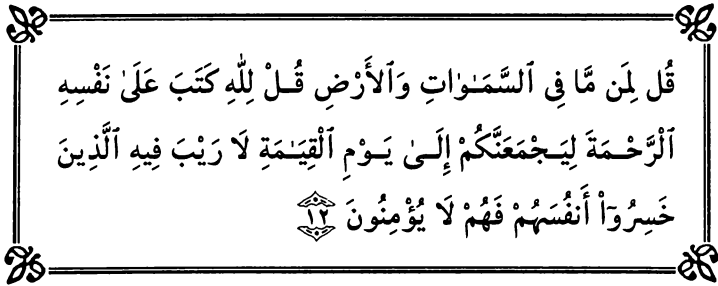 قُل لِمَن مَّا فِى ٱلسَّمَـٰوَٰتِ وَٱلأَرْضِ قُـلْ لِلّٰهِ كَتَبَ عَلَىٰ نَفْسِهِ
ٱلْرَّحْـمَةَ لِيَـجْمَعَنَّكُمْ إِلَـىٰ يَـوْمِ ٱلْقِيَـٰمَةِ لَا رَيْبَ فِيهِ ٱلَّذِينَ
خَسِرُوٓاْ أَنفُسَهُمْ فَهُمْ لَا يُؤْمِنُونَ ١٢